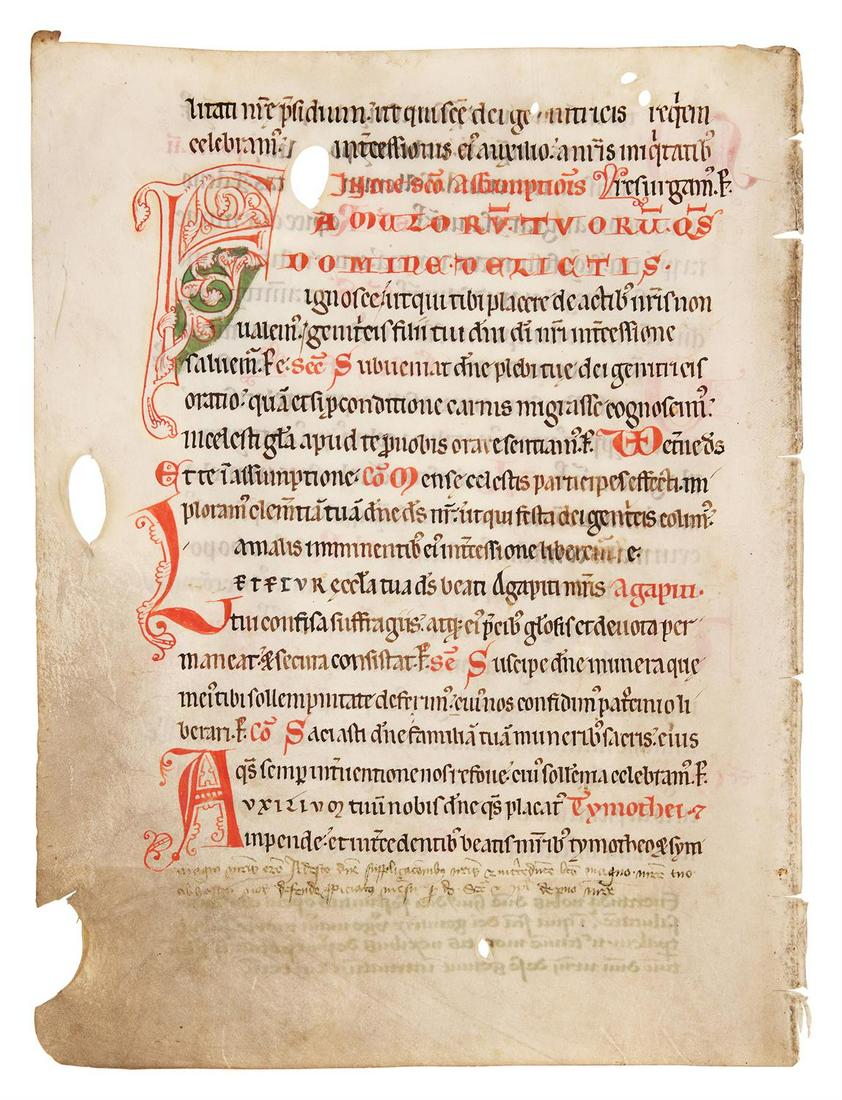 litati nr̄e p̄sidium. ut qui sc̄e dei ge nitricis req̇em
celebram᷒. int̄cessionis ei᷒ auxilio. a nr̄is iniq̇tatib᷒
In die sc̄o Assumptiōis resurgam᷒. P̄.
FAMULORŪ. TUORŪ. Q̄S
DOMINE. DELICTIS.
ignosce. ut qui tibi placere de actib᷒ nr̄is non
ualem᷒. genit̄cis filii tui dn̄i dī nr̄i int̄cessione
saluem᷒. P̄ e. sēc Subueniat dn̄e plebi tue dei genitricis
oratio. quā etsi ꝑ conditione carnis migrasse cognoscim᷒.
in celesti gl̄a apud te ꝓ nobis orare sentiam᷒. P̄. VD et̄ne ds̄
Et te ī assumptione. Cō Mense celestis participes effecti. im
ploram᷒ clem̄tiā tuā dn̄e ds̄ nr̄. ut qui festa dei genit̄cis colim᷒.
a malis imminentib᷒ ei᷒ int̄cessione liberem᷒
LETETUR eccl̄a tua ds̄ beati Agapiti mr̄is Agapiti.
tui confisa suffragiis. atq; ei᷒ p̄cib᷒ gl̄osis et deuota per
maneat. & secura consistat. P̄. sē Suscipe dn̄e munera que
in ei᷒ tibi sollempnitate deferim᷒. cui᷒ nos confidim᷒ pat̊cinio li
berari. P̄. Cō Saciasti dn̄e familiā tuā munerib᷒ sacris. eius
q̄s semp int̄uentione nos refoue. cui᷒ sollem̄ia celebram᷒. P̄.
AUXILIUM tuū nobis dn̄e q̄s placat᷒ Tymothei. ⁊
inpende. et int̄cedentib᷒ beatis mr̄ib᷒ tymotheo & sym
Adesto dn̄e
nos defende